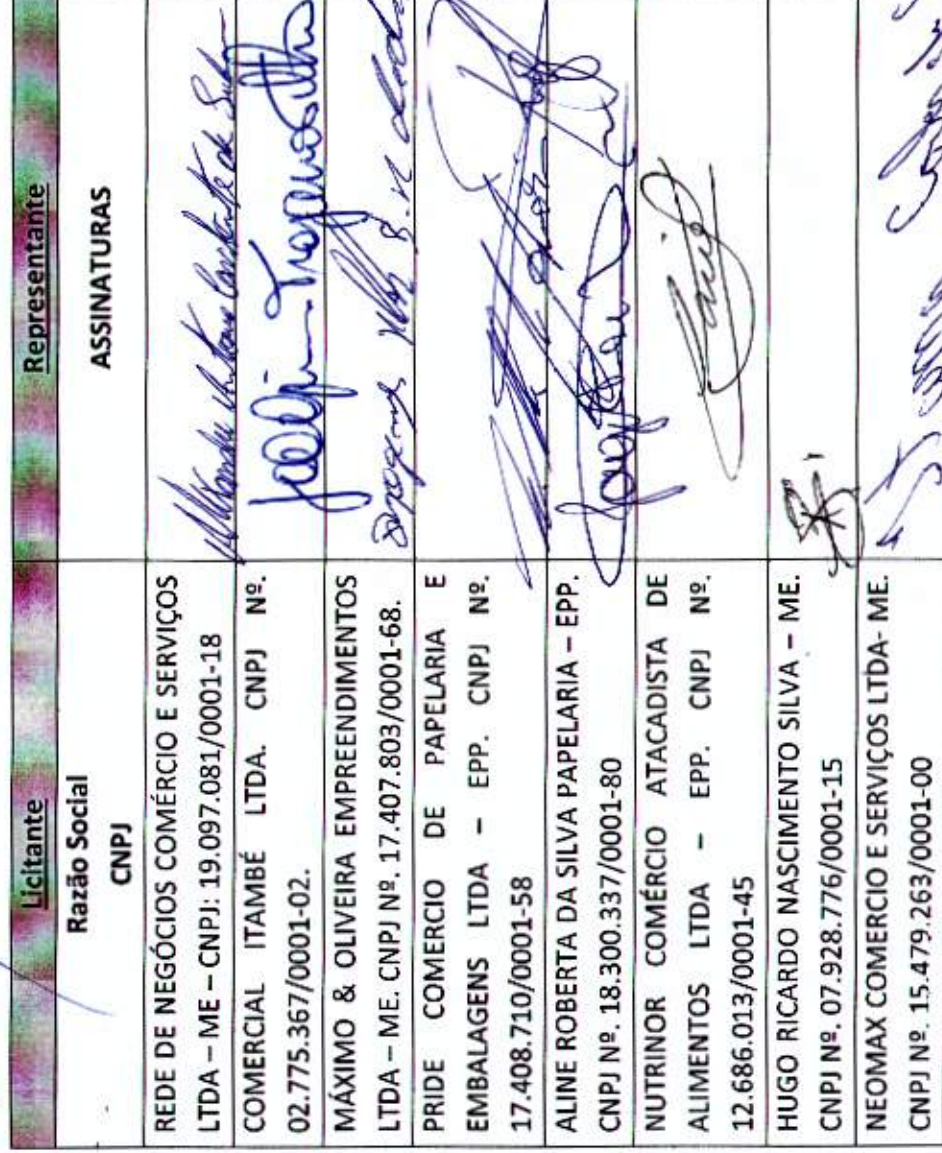 Licitante
Representante
Razão Social
CNPJ
ASSINATURAS
REDE DE NEGÓCIOS COMÉRCIO E SERVIÇOS
LTDA – ME – CNPJ: 19.097.081/0001-18
COMERCIAL ITAMBÉ LTDA. CNPJ Nº.
02.775.367/0001-02.
MÁXIMO & OLIVEIRA EMPREENDIMENTOS
LTDA – ME. CNPJ Nº. 17.407.803/0001-68.
PRIDE COMERCIO DE PAPELARIA E
EMBALAGENS LTDA – EPP. CNPJ Nº.
17.408.710/0001-58
ALINE ROBERTA DA SILVA PAPELARIA – EPP.
CNPJ Nº. 18.300.337/0001-80
NUTRINOR COMÉRCIO ATACADISTA DE
ALIMENTOS LTDA – EPP. CNPJ Nº.
12.686.013/0001-45
HUGO RICARDO NASCIMENTO SILVA – ME.
CNPJ Nº. 07.928.776/0001-15
NEOMAX COMERCIO E SERVIÇOS LTDA- ME.
CNPJ Nº. 15.479.263/0001-00